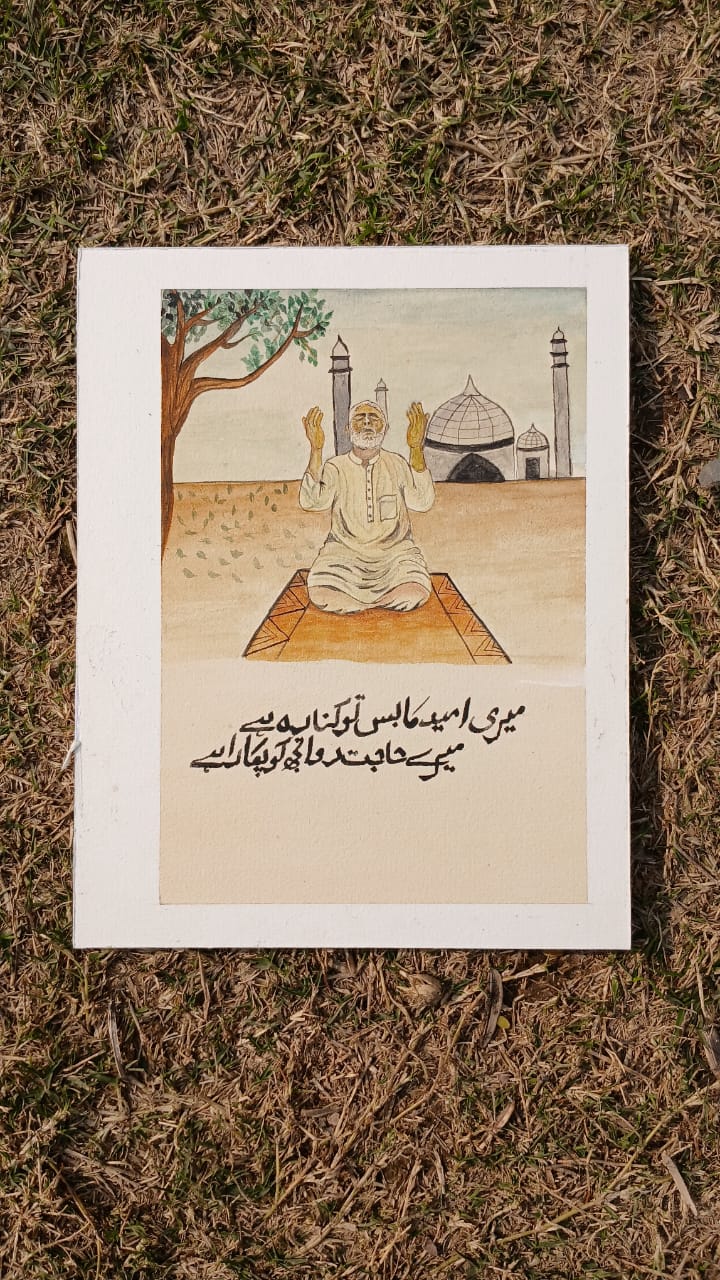 میری امید کا بس تو کنارہ ہے
میرے حاجت روا تجھ کو پکارا ہے